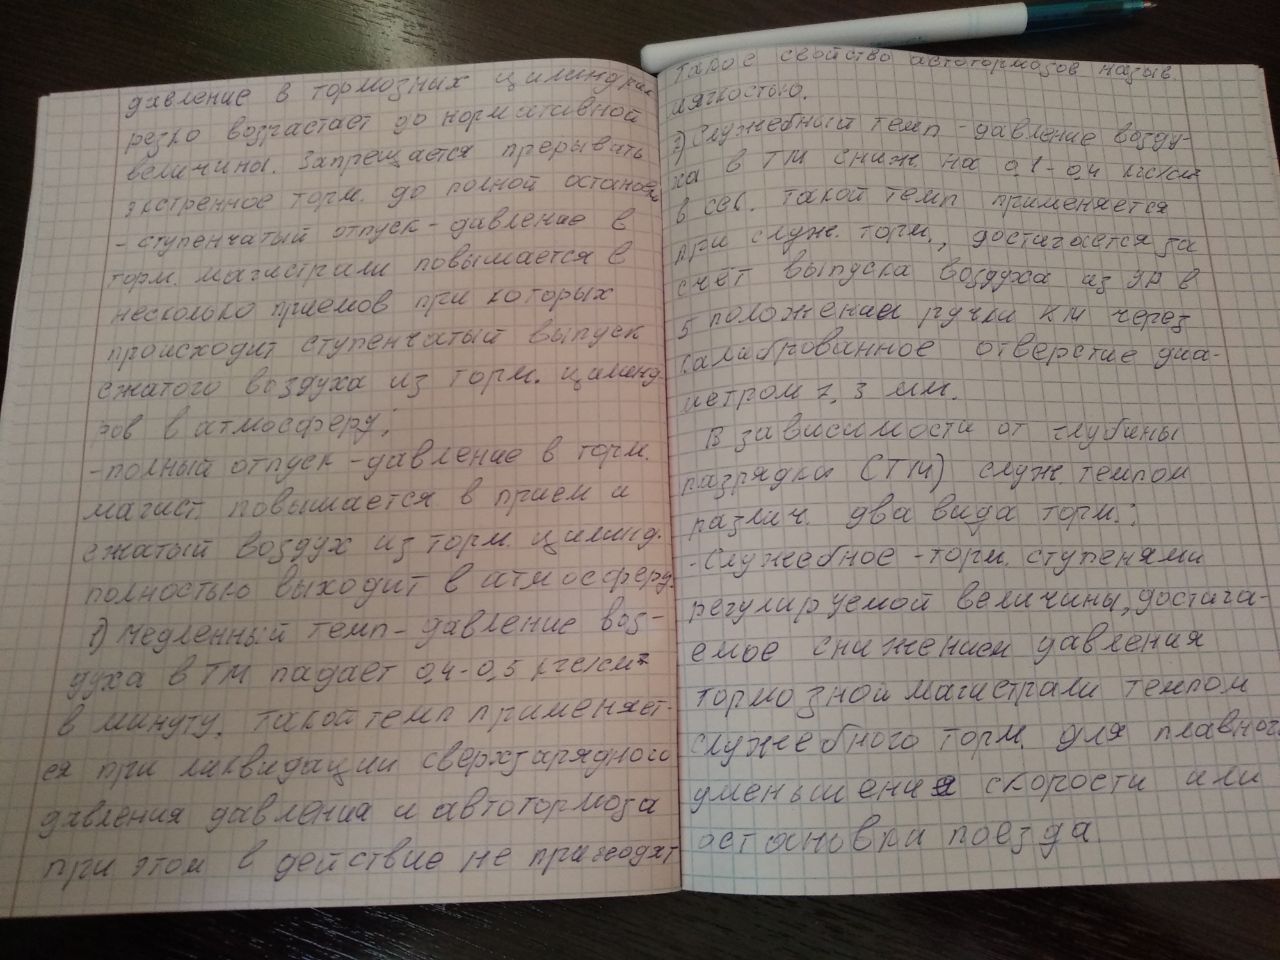 давление в тормозных цилиндрах
резко возрастает до нормативной
величины. Запрещается прерывать
экстренное торм. до полной останов
- ступенчатый отпуск - давление в
торм. магистрали повышается в
несколько приемов при которых
происходит ступенчатый выпуск
сжатого воздуха из торм. цилинд-
ров в атмосферу;
- полный отпуск - давление в торм.
магист. повышается в прием и
сжатый воздух из торм. цилинд.
полностью выходит в атмосферу.
1) Медленный темп - давление воз-
духа в ТМ падает 0,4-0,5 кгс/см²
в минуту. Такой темп применяет-
ся при ликвидации сверхзарядного
давления давления и автотормоза
при этом в действие не приходят
такое свойство автотормозов назыв
мягкостью.
2) Служебный темп - давление возду-
ха в ТМ сниж. на 0,1-0,4 кгс/см²
в сек. Такой темп применяется
при служ. торм., достигается за
счёт выпуска воздуха из УР в
5 положении ручки КМ через
калиброванное отверстие диа-
метром 2,3 мм.
В зависимости от глубины
разрядки (ТМ) служ. темпом
различ. два вида торм.:
- Служебное - торм. ступенями
регулируемой величины, достига-
емое снижением давления
тормозной магистрали темпом
служебного торм. для плавного
уменьшения скорости или
остановки поезда.